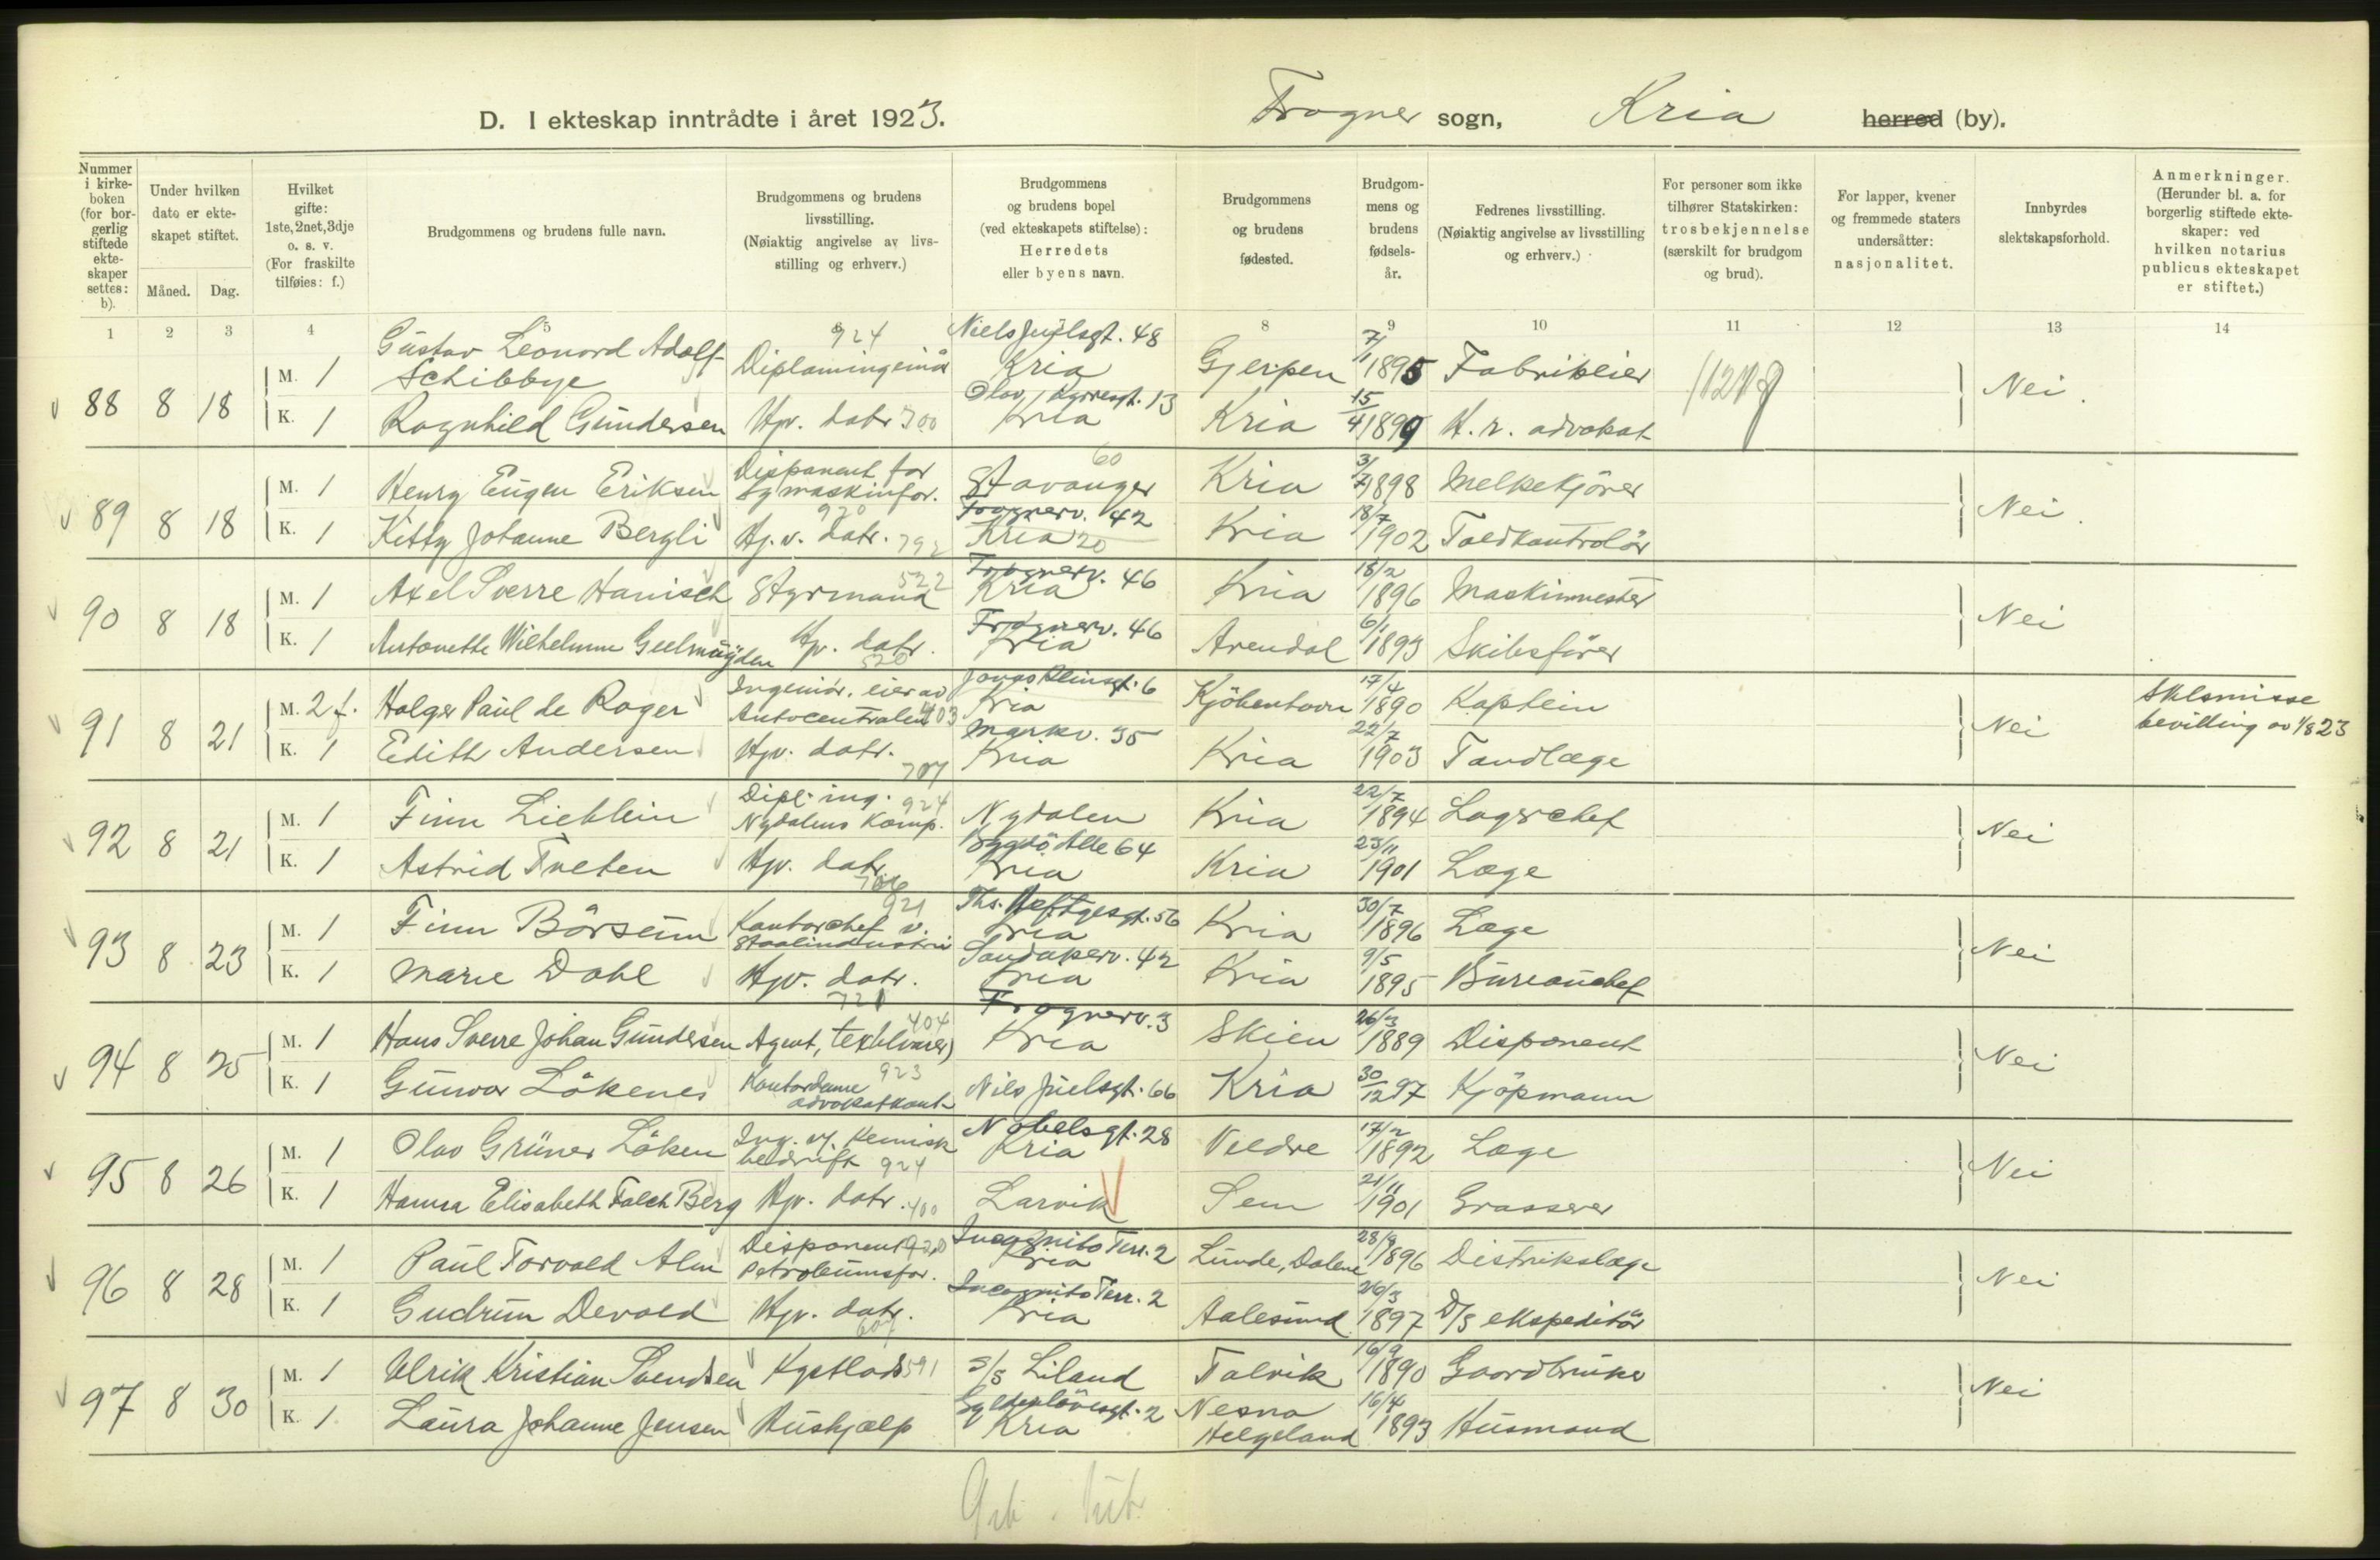 D. I ekteskap inntrådte i året 1923. Frogner sogn, Kria herred (by).
Nummer i kirkeboken (for borgerlig stiftede ekteskaper settes: b).
Under hvilken dato er ekteskapet stiftet.
Måned. Dag.
Hvilket gifte: 1ste, 2net, 3dje o. s. v. (For fraskilte tilføies: f.)
Brudgommens og brudens fulle navn.
Brudgommens og brudens livsstilling. (Nøiaktig angivelse av livsstilling og erhverv.)
Brudgommens og brudens bopel (ved ekteskapets stiftelse): Herredets eller byens navn.
Brudgommens og brudens fødested.
Brudgommens og brudens fødselsår.
Fedrenes livsstilling. (Nøiaktig angivelse av livsstilling og erhverv.)
For personer som ikke tilhører Statskirken: trosbekjennelse (særskilt for brudgom og brud).
For lapper, kvener og fremmede staters undersåtter: nasjonalitet.
Innbyrdes slektskapsforhold.
Anmerkninger. (Herunder bl. a. for borgerlig stiftede ekteskaper: ved hvilken notarius publicus ekteskapet er stiftet.)
1 2 3 4 5 8 9 10 11 12 13 14
88 8 18 M. 1 Gustav Leonard Adolf Schibbye Diplomingeniør 924 Niels Juelsgt. 48 Kria Gjerpen 7/1 1895 Fabrikeier Nei.
K. 1 Ragnhild Gundersen Hjv. datr 700 Olav Kyrresgt. 13 Kria Kria 15/4 1899 H. r. advokat
89 8 18 M. 1 Henry Eugen Eriksen Disponent for Symaskinfor. 920 Stavanger 60 Kria 3/7 1898 Melkekjører Nei.
K. 1 Kitty Johanne Bergli Hj. v. datr. 792 Frognerv. 42 Kria 20 Kria 18/7 1902 Toldkontrolør
90 8 18 M. 1 Axel Sverre Hanisch Styrmand 522 Frognerv. 46 Kria Kria 18/2 1896 Maskinmester Nei
K. 1 Antonette Wilhelmine Geelmuyden Hjv. datr. 520 Frognerv. 46 Kria Arendal 6/1 1893 Skibsfører
91 8 21 M. 2 f. Holger Paul de Roger Ingeniør, eier av Autocentralen 403 Jonas Reinsgt. 6 Kria Kjøbenhavn 17/4 1890 Kaptein Nei Sklsmisse bevilling av 1/8 23
K. 1 Edith Andersen Hjv. datr. 707 Markv. 35 Kria Kria 22/7 1903 Tandlæge
92 8 21 M. 1 Finn Lieblein Dipl. ing. 924 Nydalens Komp. Nydalen Kria 22/7 1894 Lagerchef Nei
K. 1 Astrid Tveten Hjv. datr. 706 Bygdö Alle 64 Kria Kria 23/11 1901 Læge
93 8 23 M. 1 Finn Börseum Kontorchef v. Staalindustri 921 Ths. Heftyesgt. 56 Kria Kria 30/7 1896 Læge Nei
K. 1 Marie Dahl Hjv. datr. 721 Sandakerv. 42 Kria Kria 9/5 1895 Bureauchef
94 8 25 M. 1 Hans Sverre Johan Gundersen Agent, (textilvarer) 404 Frognerv. 3 Kria Skien 26/3 1889 Disponent Nei
K. 1 Gunvor Løkenes Kontordame advokatkont. 923 Nils Juelsgt. 66 Kria 30/12 97 Kjøpmann
95 8 26 M. 1 Olav Grüner Løken Ing. v/ kemisk bedrift 924 Nobelsgt. 28 Kria Veldre 17/2 1892 Læge Nei
K. 1 Hanna Elisabeth Falch Berg Hjv. datr. 400 Larvik Sem 21/11 1901 Grosserer
96 8 28 M. 1 Paul Torvald Alm Disponent 920 Petroleumsfor. Incognito Terr. 2 Kria Lunde, Dalene 28/9 1896 Distriktslæge Nei
K. 1 Gudrun Devold Hjv. datr. 607 Incognito Terr. 2 Kria Aalesund 26/3 1897 D/S ekspeditør
97 8 30 M. 1 Ulrik Kristian Svendsen Kystlods 591 S/S Liland Talvik 16/9 1890 Gaardbruker Nei
K. 1 Laura Johanne Jensen Hushjælp Gyldenløvesgt. 2 Kria Nesna Helgeland 16/4 1893 Husmand